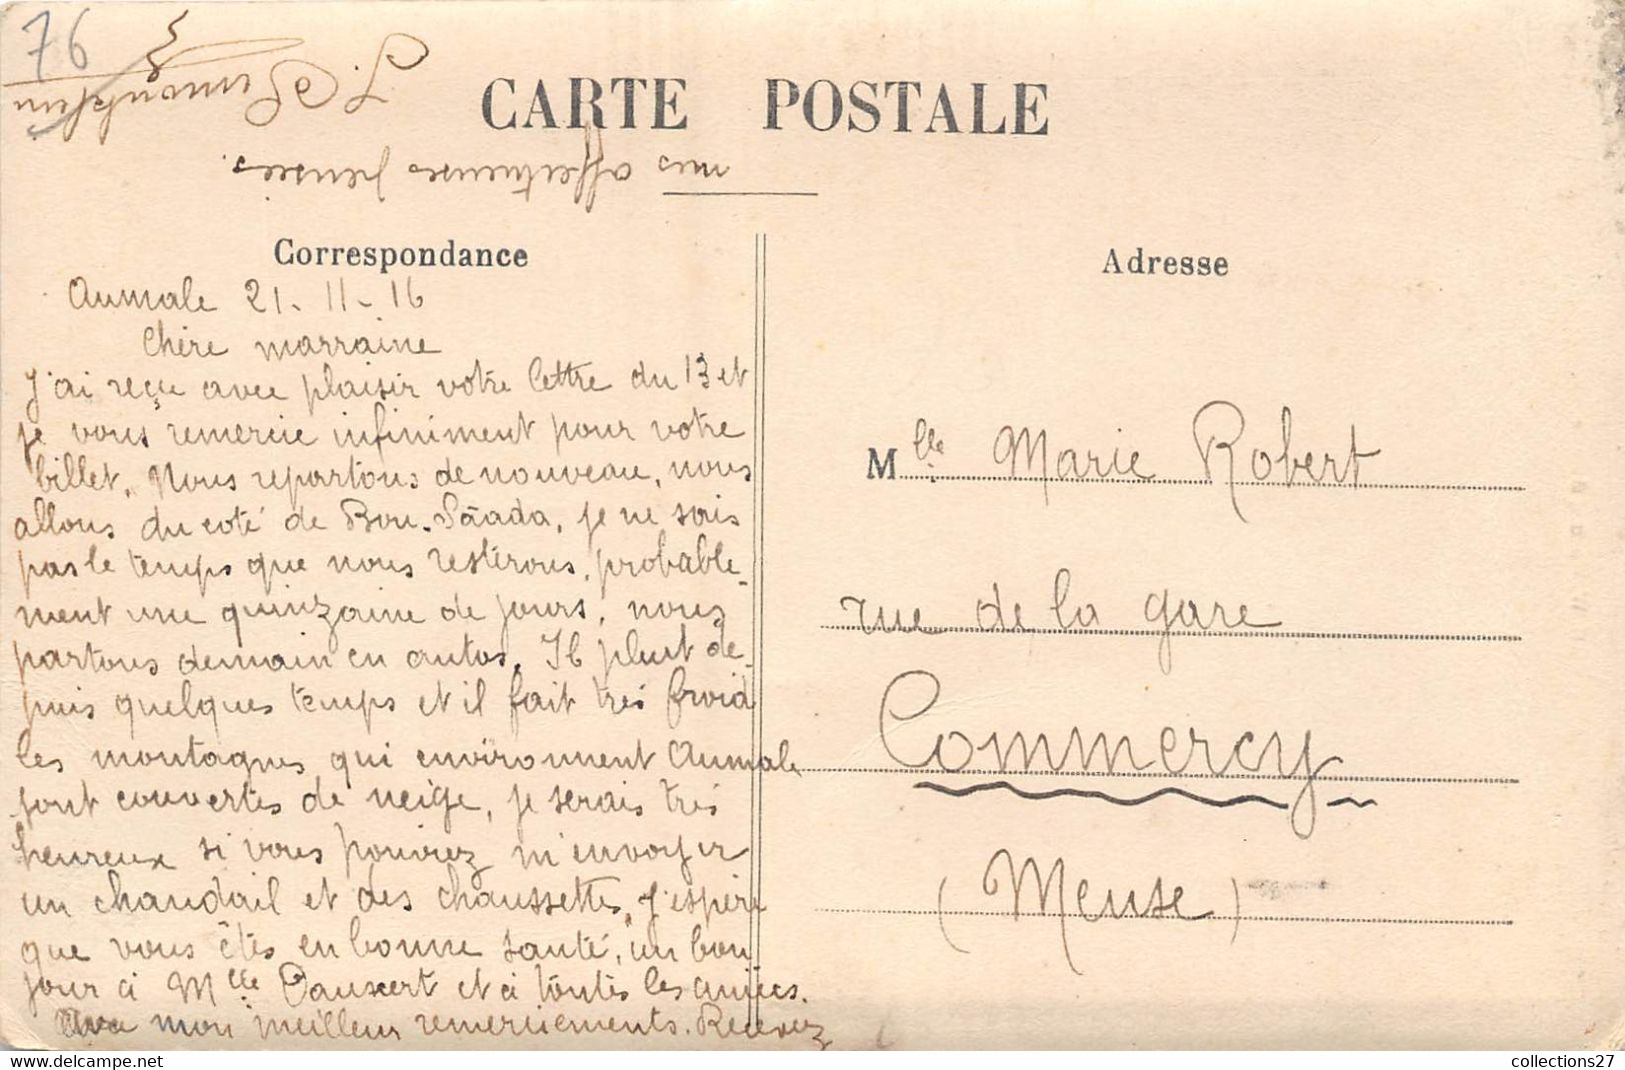 76
CARTE POSTALE
Correspondance
Aumale 21-11-16
Chère marraine
J'ai reçu avec plaisir votre lettre du 13 et
je vous remercie infiniment pour votre
billet. Nous repartons de nouveau, nous
allons du coté de Bou-Sâada, je ne sais
pas le temps que nous resterons, probable-
ment une quinzaine de jours, nous
partons demain en autos. Il pleut de-
puis quelques temps et il fait très froid
les montagnes qui environnent Aumale
sont couvertes de neige, je serais très
heureux si vous pouviez m'envoyer
un chandail et des chaussettes, j'espère
que vous êtes en bonne santé, un bon
jour à Mlle et à toutes les amies.
Avec mon meilleur remerciements. Recevez
mes affectueuses pensées.
Adresse
Mlle Marie Robert
rue de la gare
Commercy
(Meuse)
collections27